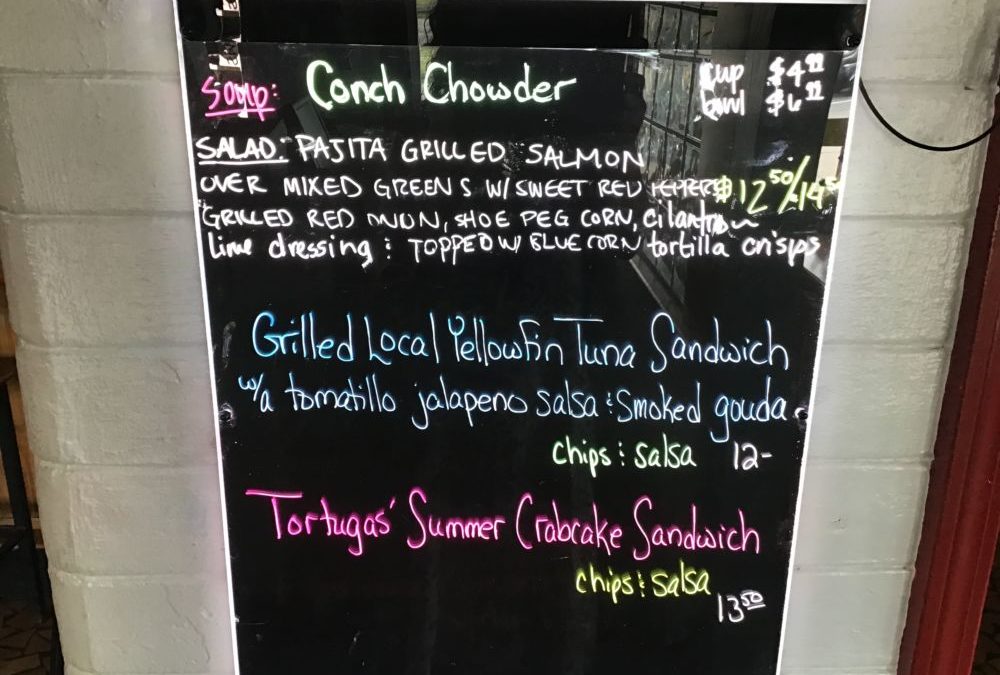 Soup: Conch Chowder cup $4.99
bowl $6.99
SALAD: PAJITA GRILLED SALMON
OVER MIXED GREENS W/ SWEET RED PEPPERS $12.50/14.5
GRILLED RED ONION, SHOE PEG CORN, cilantro
lime dressing & TOPPED W/ BLUE CORN tortilla crisps
Grilled Local Yellowfin Tuna Sandwich
w/a tomatillo jalapeno salsa & Smoked gouda
chips & salsa 12-
Tortugas' Summer Crabcake Sandwich
chips & salsa
13.50